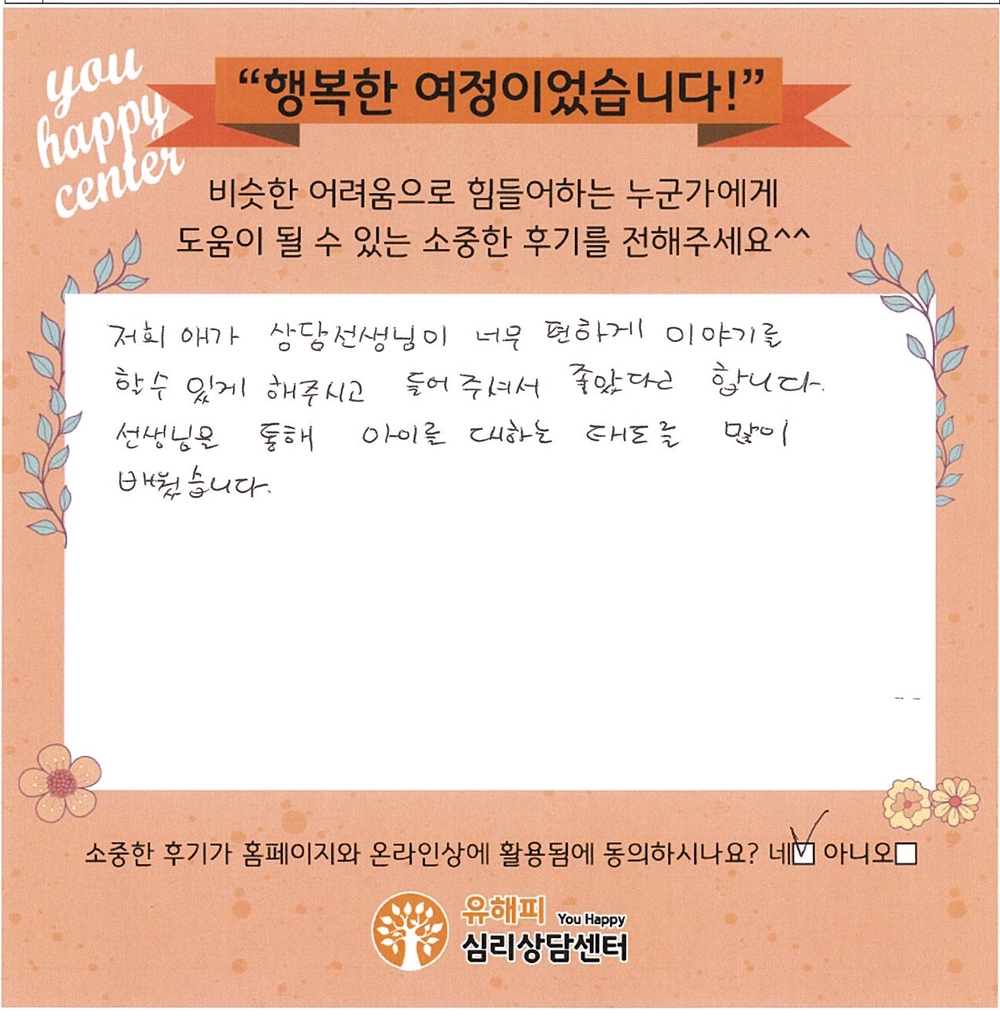 you
happy
center
“행복한 여정이었습니다!”
비슷한 어려움으로 힘들어하는 누군가에게
도움이 될 수 있는 소중한 후기를 전해주세요^^
저희 애가 상담선생님이 너무 편하게 이야기를
할수 있게 해주시고 들어주셔서 좋았다고 합니다.
선생님을 통해 아이를 대하는 태도를 많이
배웠습니다.
소중한 후기가 홈페이지와 온라인상에 활용됨에 동의하시나요? 네☑ 아니오☐
유해피 You Happy
심리상담센터